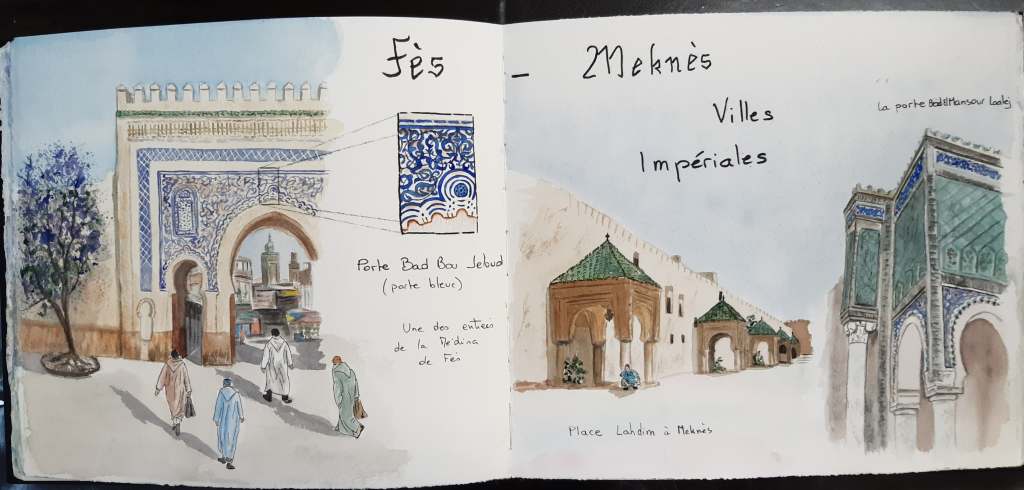 Fès
Porte Bad Bou Jeloud
(porte bleue)
Une des entrées
de la Médina
de Fès
- Meknès
Villes
Impériales
La porte Bad el Mansour Laalej
Place Lahdim à Meknès